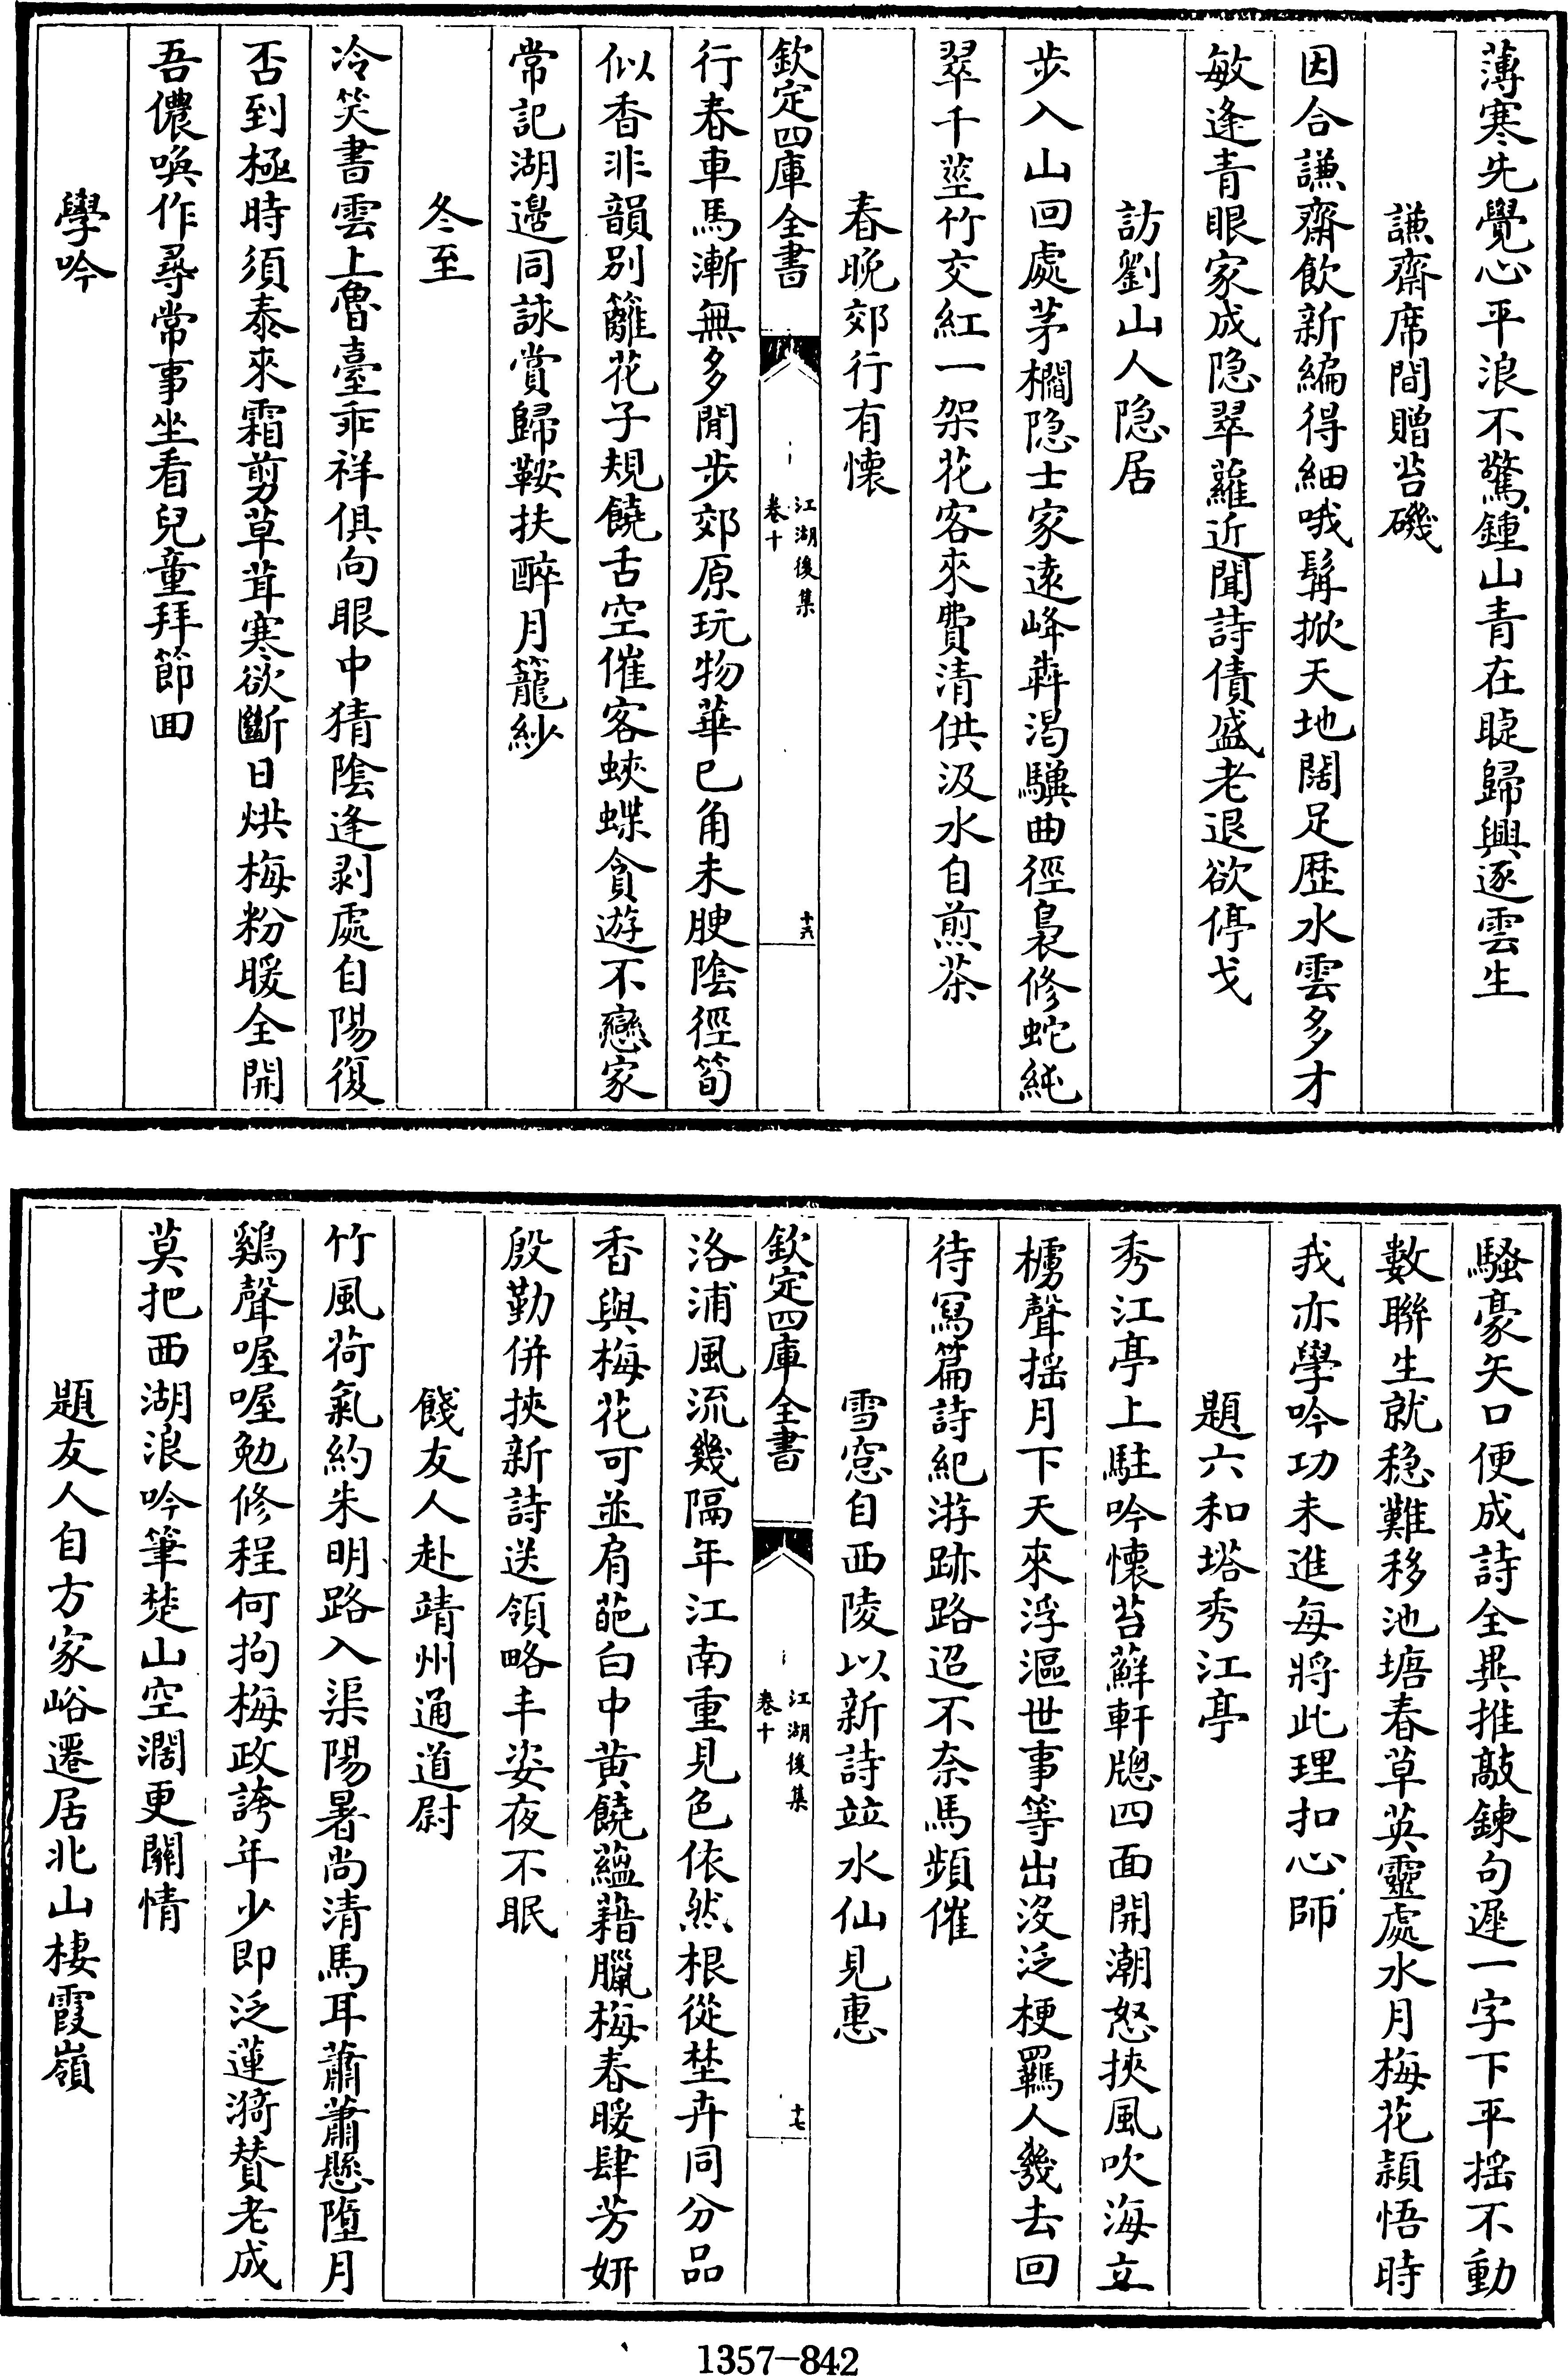 薄寒先覺心平浪不驚鍾山青在睫歸興逐雲生
謙齋席間贈苔磯
因合謙齋飲新編得細哦髯掀天地闊足歴水雲多才
敏逢青眼家成隐翠蘿近聞詩債盛老退欲停戈
訪劉山人隐居
步入山回處茅櫩隐士家遠峰犇渴驥曲徑裊修蛇純
翠千莖竹交紅一架花客來費清供汲水自煎茶
春晚郊行有懷
欽定四庫全書
江湖後集
卷十
十六
行春車馬漸無多閒步郊原玩物華巳角未腴陰徑筍
似香非韻别籬花子規饒舌空催客蛺蝶貪遊不戀家
常記湖邉同詠賞歸鞍扶醉月籠紗
冬至
冷笑書雲上魯臺乖祥俱向眼中猜陰逢剥處自陽復
否到極時須泰來霜剪草茸寒欲斷日烘梅粉暖全開
吾儂喚作尋常事坐看兒童拜節囬
學吟
騷豪矢口便成詩全異推敲鍊句遲一字下平揺不動
數聯生就穏難移池塘春草英靈處水月梅花頴悟時
我亦學吟功未進每將此理扣心師
題六和塔秀江亭
秀江亭上駐吟懷苔蘚軒牕四面開潮怒挾風吹海立
櫓聲揺月下天來浮漚世事等出没泛梗羈人幾去回
待寫篇詩紀游跡路迢不奈馬頻催
雪窓自西陵以新詩竝水仙見惠
欽定四庫全書
江湖後集
卷十
十七
洛浦風流幾隔年江南重見色依然根從埜卉同分品
香與梅花可並肩葩白中黄饒蘊藉臘梅春暖肆芳妍
殷勤併挾新詩送領略丰姿夜不眠
餞友人赴靖州通道尉
竹風荷氣約朱明路入渠陽暑尚清馬耳蕭蕭懸墮月
鷄聲喔喔勉修程何拘梅政誇年少即泛蓮漪賛老成
莫把西湖浪吟筆楚山空濶更關情
題友人自方家峪遷居北山棲霞嶺
1357-842